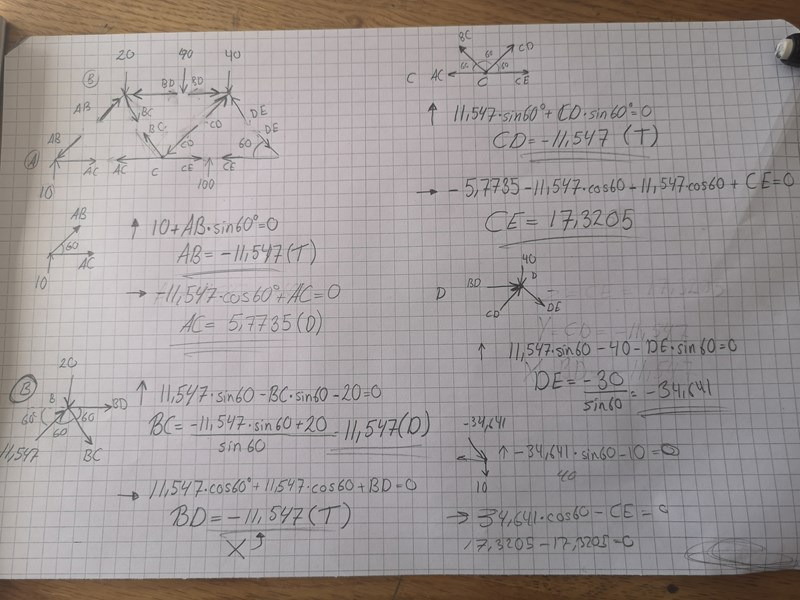 20 90 40
B BD BD
AB BC DE
AB BC CD DE
A CD 60
AC AC C CE CE
10 100
AB
60
10 AC
↑ 10+AB·sin60°=0
AB=-11,547(T)
→ -11,547·cos60°+AC=0
AC= 5,7735(D)
20
B B BD
60 60
60
11,547 BC
↑ 11,547·sin60-BC·sin60-20=0
BC= -11,547·sin60+20
sin60
-11,547(D)
→ 11,547·cos60°+11,547·cos60+BD=0
BD=-11,547(T)
X
BC CD
60 60 60
C AC C CE
↑ 11,547·sin60°+CD·sin60°=0
CD=-11,547 (T)
→ -5,7735-11,547·cos60-11,547·cos60+CE=0
CE=17,3205
40
D BD D
CD DE
↑ 11,547·sin60-40-DE·sin60=0
DE= -30 = -34,641
sin60
-34,641
↑ -34,641·sin60-10=0
10 40
→ 34,641·cos60-CE=0
17,3205-17,3205=0